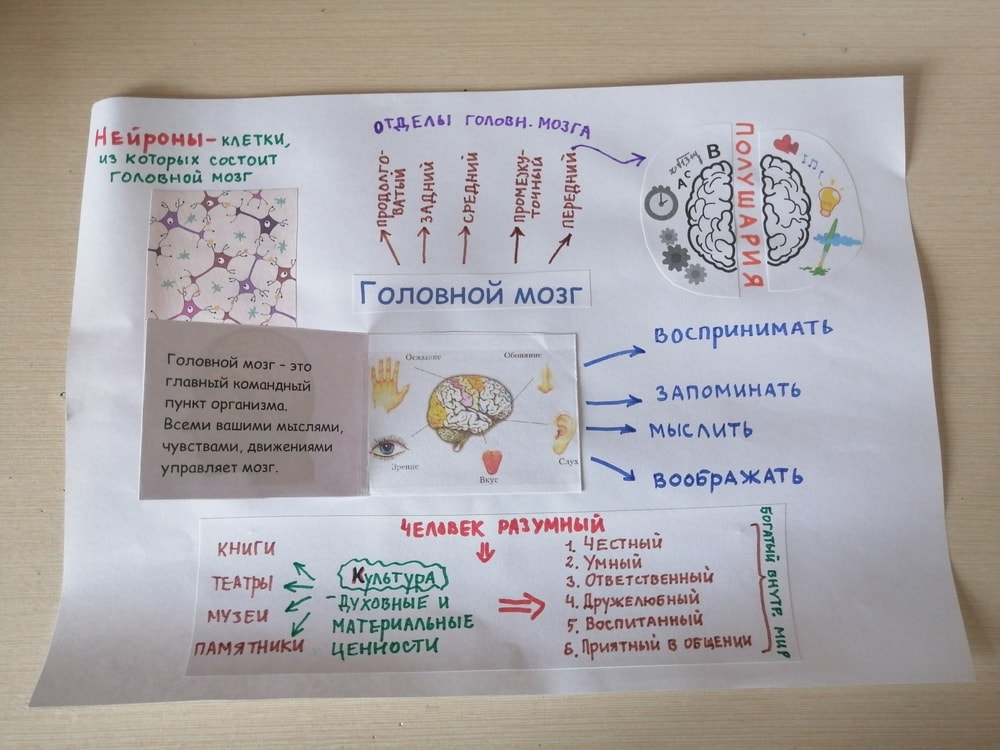 Нейроны - клетки,
из которых состоит
головной мозг
Отделы головн. мозга
продолго-
ватый
задний
средний
промежу-
точный
передний
B
A C
ПОЛУШАРИЯ
Головной мозг
Головной мозг - это
главный командный
пункт организма.
Всеми вашими мыслями,
чувствами, движениями
управляет мозг.
Осязание
Обоняние
Зрение
Вкус
Слух
воспринимать
запоминать
мыслить
воображать
Человек разумный
книги
театры
музеи
памятники
Культура
- духовные и
материальные
ценности
1. Честный
2. Умный
3. Ответственный
4. Дружелюбный
5. Воспитанный
6. Приятный в общении
Богатый внутр. мир